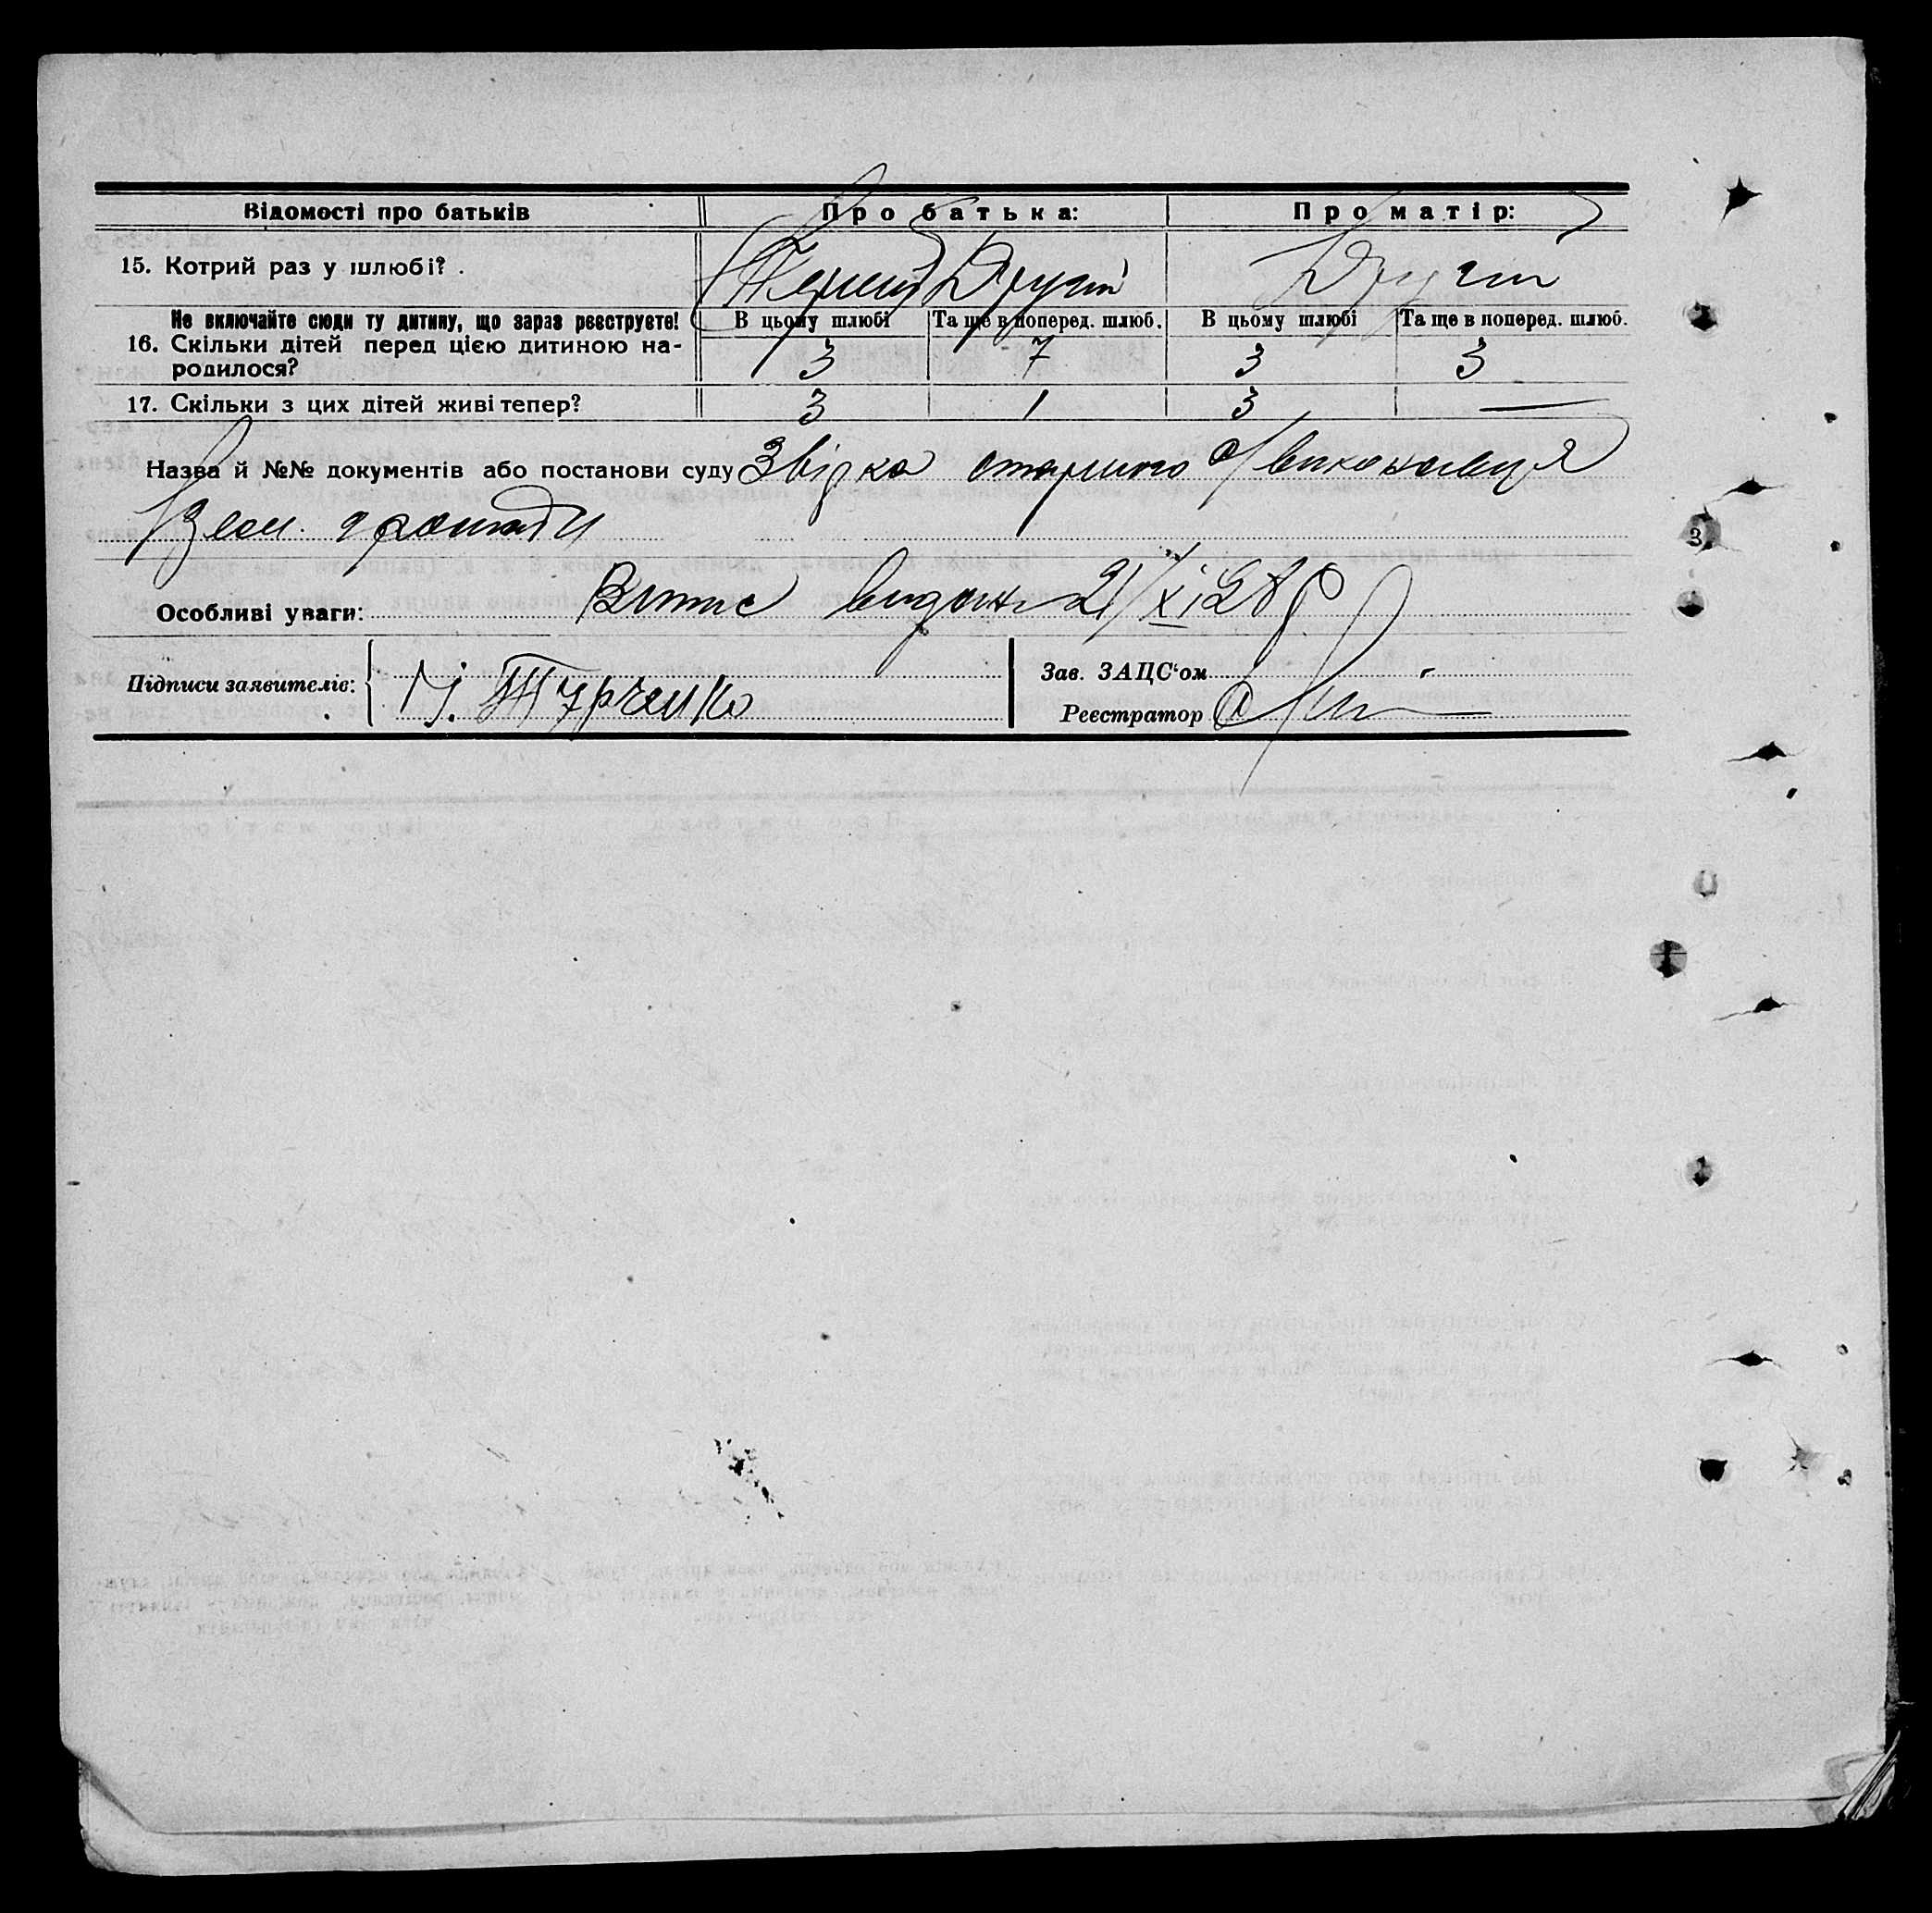 Відомості про батьків Про батька: Про матір:
15. Котрий раз у шлюбі? . (Перший) Другий Другий
Не включайте сюди ту дитину, що зараз реєструєте! В цьому шлюбі Та ще в поперед. шлюб. В цьому шлюбі Та ще в поперед. шлюб.
16. Скільки дітей перед цією дитиною на-
родилося? 3 7 3 3
17. Скільки з цих дітей живі тепер? 3 1 3 —
Назва й №№ документів або постанови суду Звідка старшого с/виконавця
Зем. громади
Особливі уваги: Витяг видано 21/XI 28 р
Підписи заявителів: Турченко
Зав. ЗАЦС'ом
Реєстратор